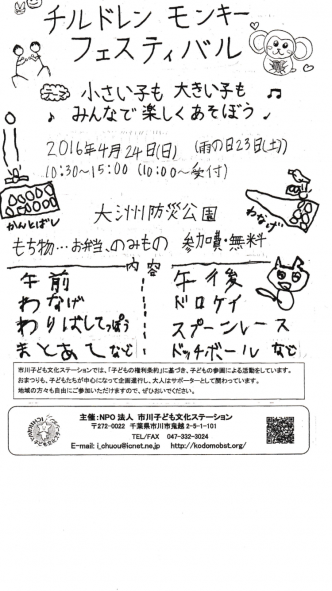 チルドレン モンキー
フェスティバル
小さい子も 大きい子も
みんなで楽しくあそぼう
2016年4月24日(日) (雨の日23日(土))
10:30～15:00 (10:00～受付)
かんとばし
わなげ
大洲防災公園
もち物…お弁当、のみもの 参加費・無料
内容
午前
わなげ
わりばしてっぽう
まとあて など
午後
ドロケイ
スプーンレース
ドッチボール など
市川子ども文化ステーションでは、「子どもの権利条約」に基づき、子どもの参画による活動をしています。
おまつりも、子どもたちが中心になって企画進行し、大人はサポーターとして関わっています。
地域の方々も自由にご参加いただけますので、ぜひおいでください。
主催：NPO法人 市川子ども文化ステーション
〒272-0022 千葉県市川市鬼越2-5-1-101
TEL/FAX 047-332-3024
E-mail: i_chuou@icnet.ne.jp http://kodomobst.org/